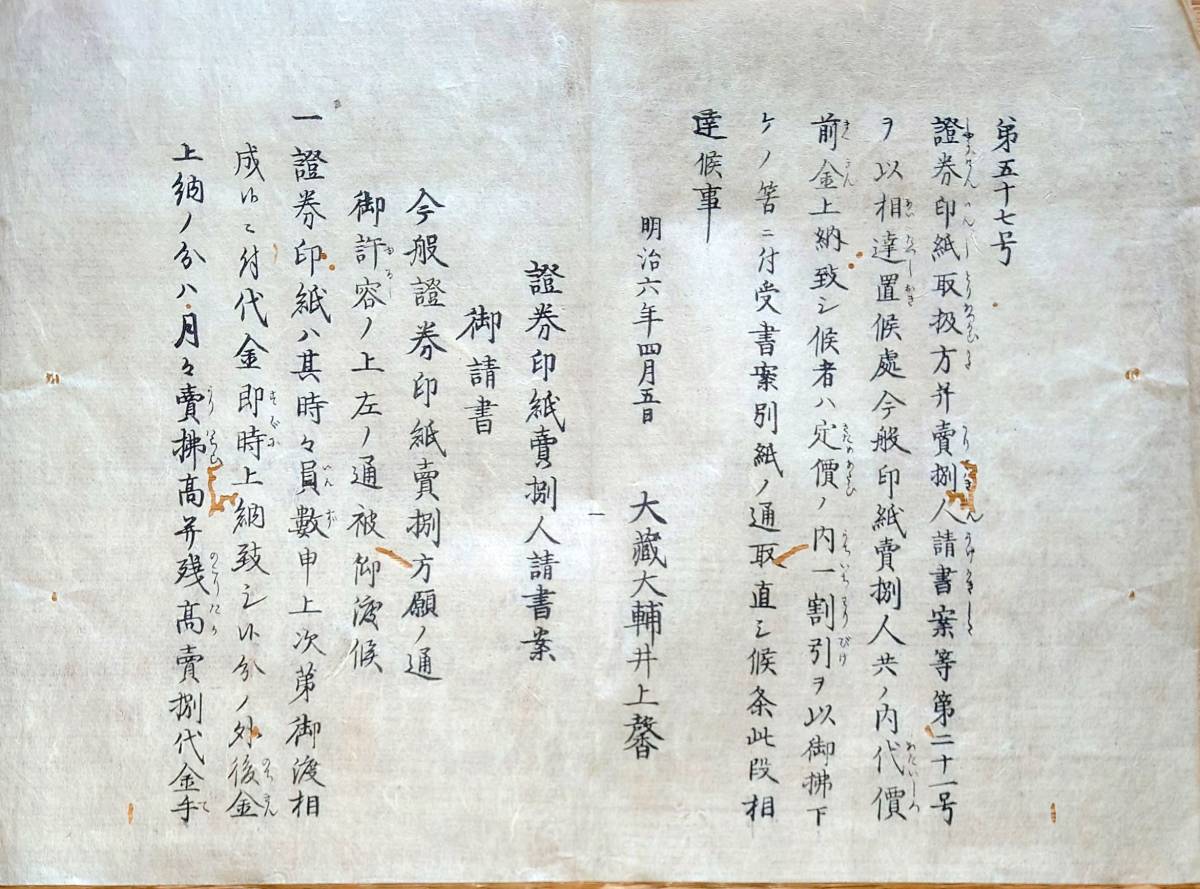 第五十七号
證券印紙取扱方并賣捌人請書案等第二十一号
ヲ以相達置候處今般印紙賣捌人共ノ内代價
前金上納致シ候者ハ定價ノ内一割引ヲ以御拂下
ケノ筈ニ付受書案別紙ノ通取直シ候条此段相
達候事
明治六年四月五日
大藏大輔井上馨
證券印紙賣捌人請書案
御請書
今般證券印紙賣捌方願ノ通
御許容ノ上左ノ通被御渡候
一證券印紙ハ其時々員數申上次第御渡相
成候ニ付代金即時上納致シ候分ノ外後金
上納ノ分ハ月々賣拂高并残高賣捌代金手